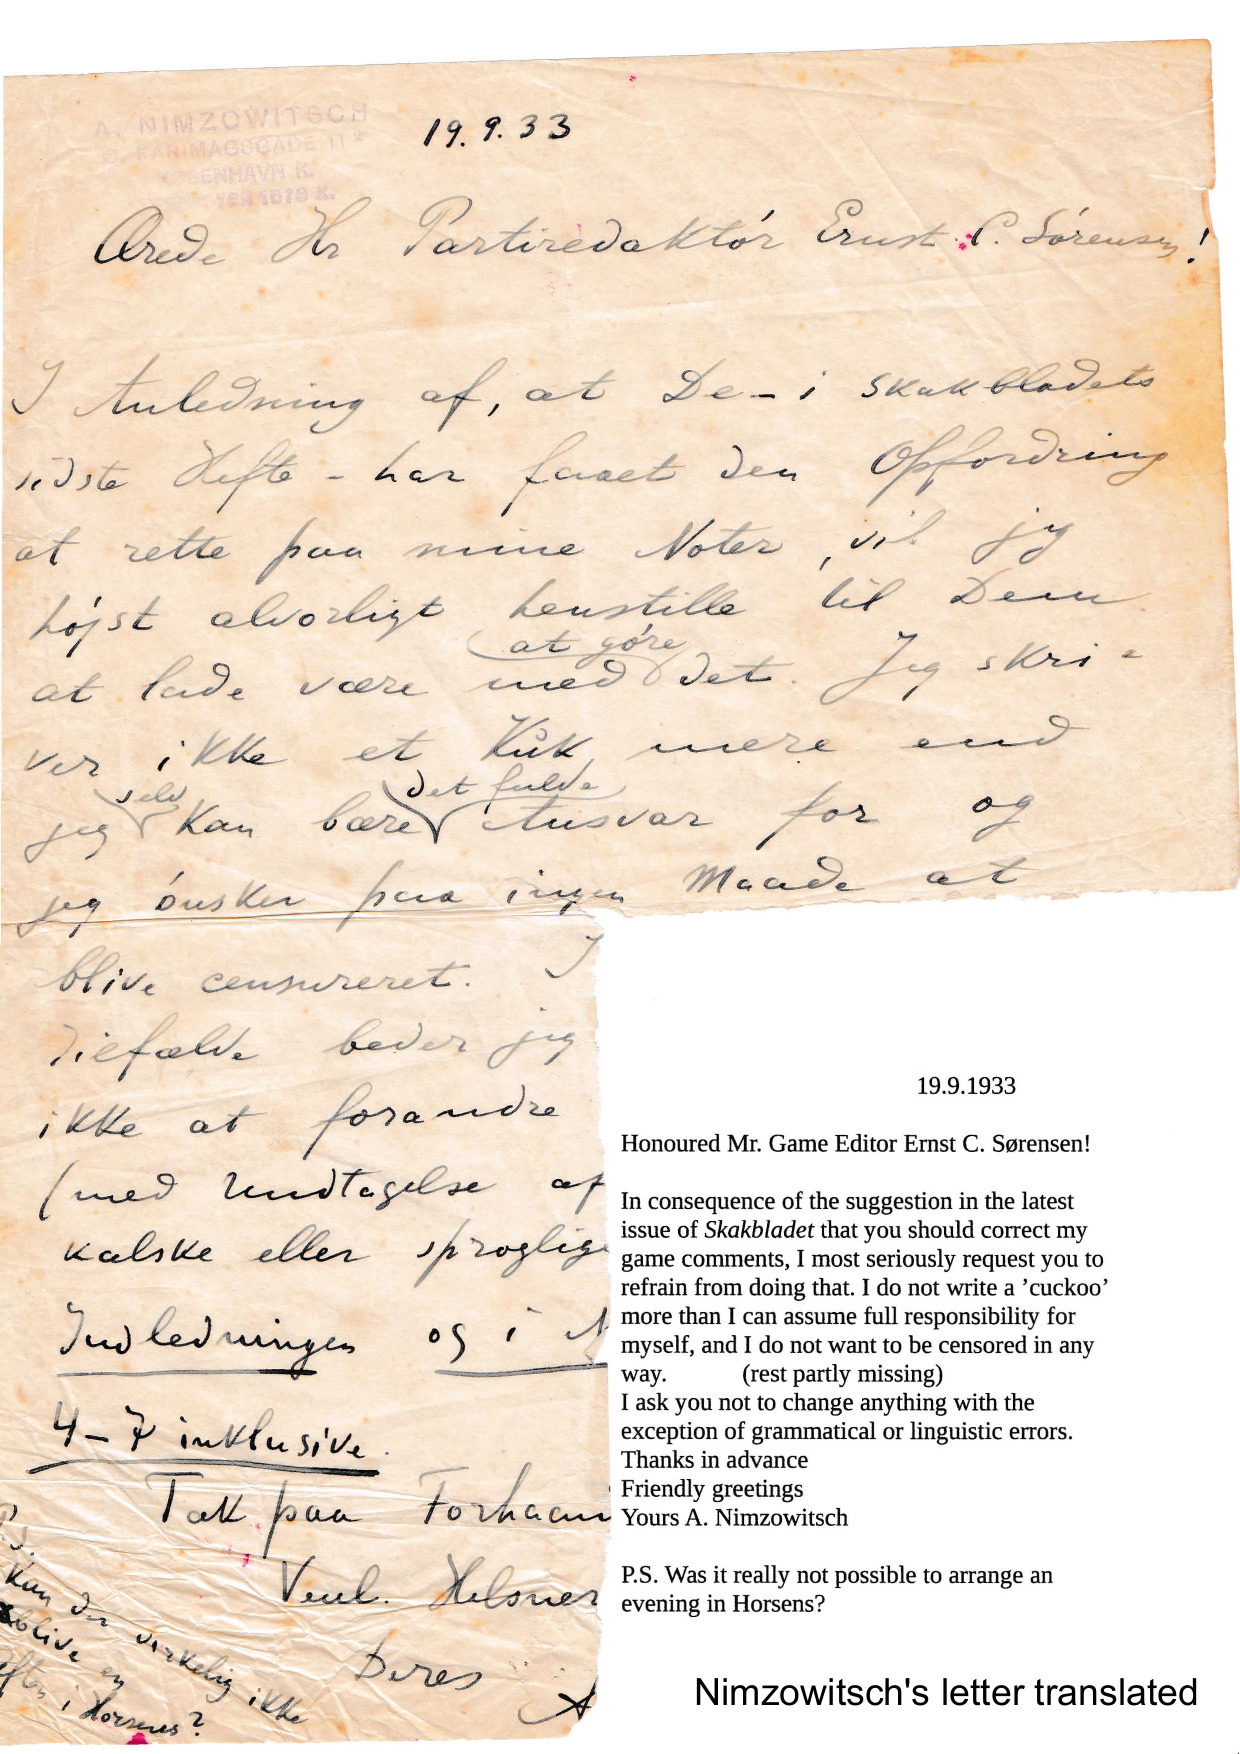 A. NIMZOWITSCH
FARIMAGSGADE 11²
KØBENHAVN K.
1678
19. 9. 33
Ærede Hr Partiredaktór Ernst C. Sórensen!
I Anledning af, at De – i Skakbladets
sidste Hefte – har faaet den Opfordring
at rette paa mine Noter, vil jeg
hójst alvorligt henstille til Dem
at góre
at lade være med det. Jeg skri=
ver ikke et Kuk mere end
selv det fulde
jeg kan bære Ansvar for og
jeg ónsker paa ingen Maade at
blive censureret. I
fælde beder jeg
ikke at forandre
(med Undtagelse af
kalske eller sproglig
Indledningen og i
4–7 inklusive.
Tak paa Forhaan
Venl. Hilsner
Deres A
P.S.
Kan der virkelig ikke
blive en
Aften i Horsens?
19.9.1933
Honoured Mr. Game Editor Ernst C. Sørensen!
In consequence of the suggestion in the latest
issue of Skakbladet that you should correct my
game comments, I most seriously request you to
refrain from doing that. I do not write a ’cuckoo’
more than I can assume full responsibility for
myself, and I do not want to be censored in any
way. (rest partly missing)
I ask you not to change anything with the
exception of grammatical or linguistic errors.
Thanks in advance
Friendly greetings
Yours A. Nimzowitsch
P.S. Was it really not possible to arrange an
evening in Horsens?
Nimzowitsch's letter translated